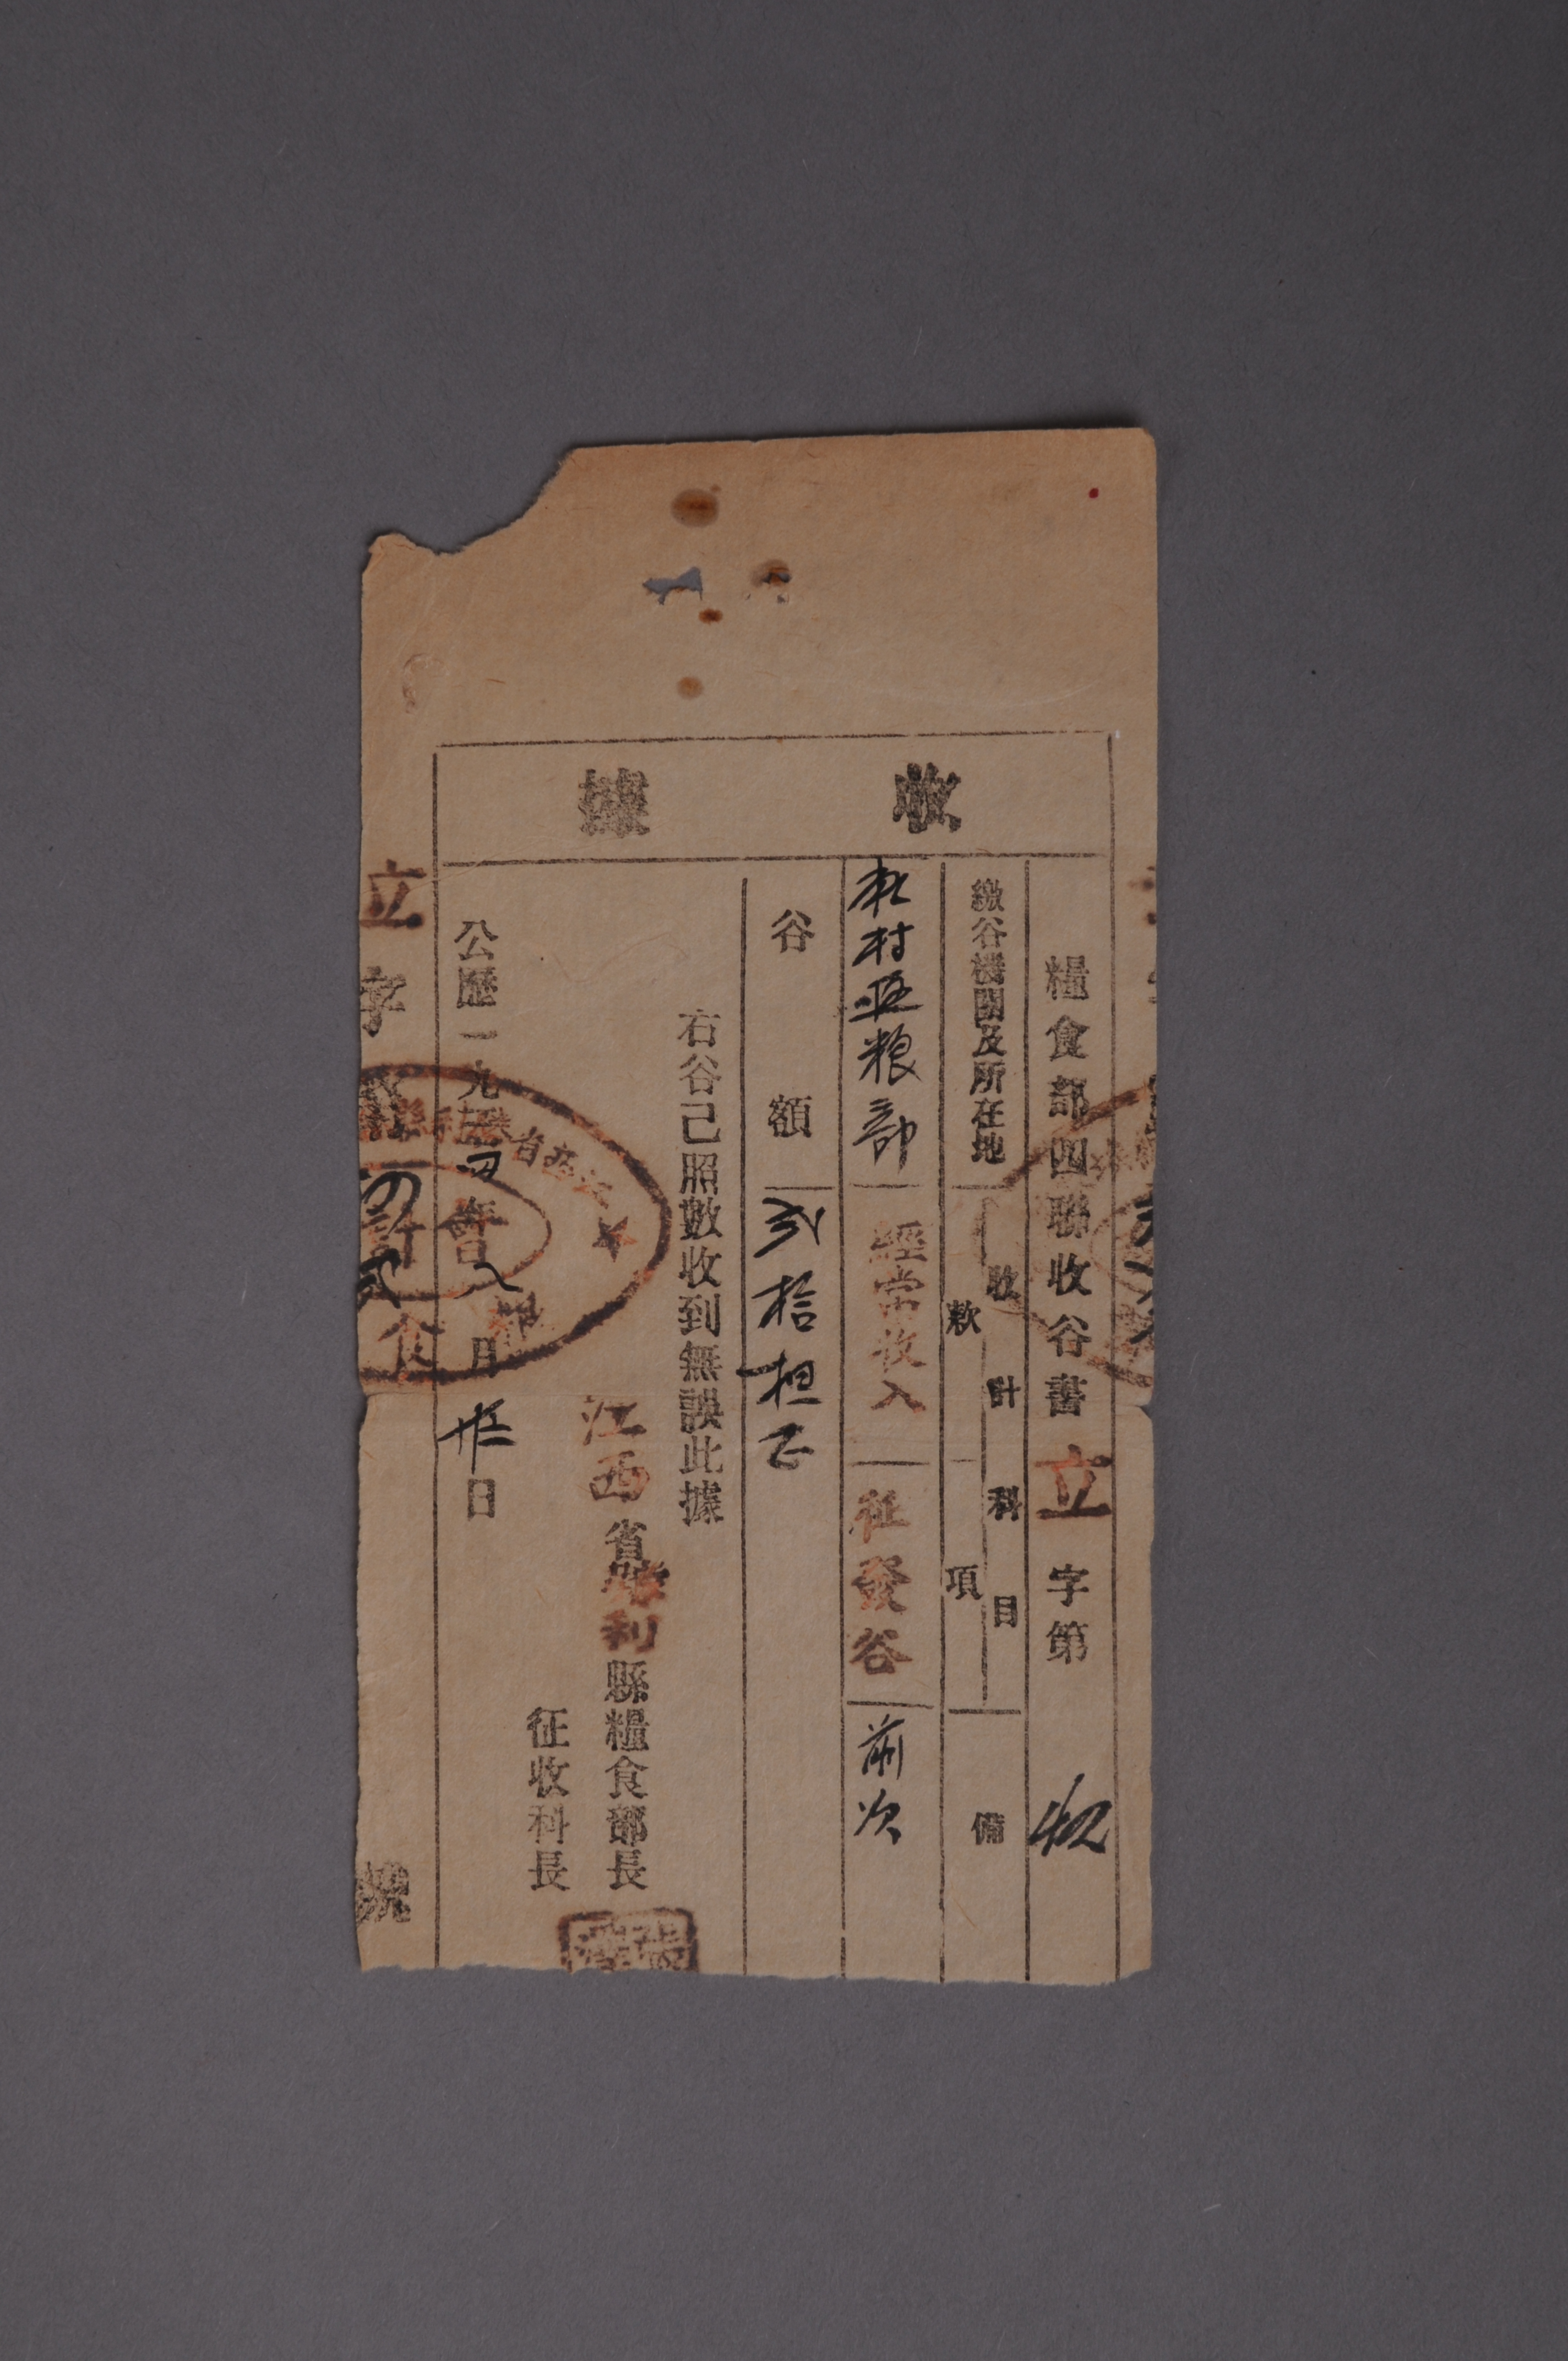 收據
糧食部四聯收谷書立字第
繳谷機關及所在地
收計科目
款項
備
村區粮部
經常收入
征發谷
前次
谷額
弍拾担正
右谷已照數收到無誤此據
江西省勝利縣糧食部長
征收科長
公歷一九三四年八月廿日
立字
號